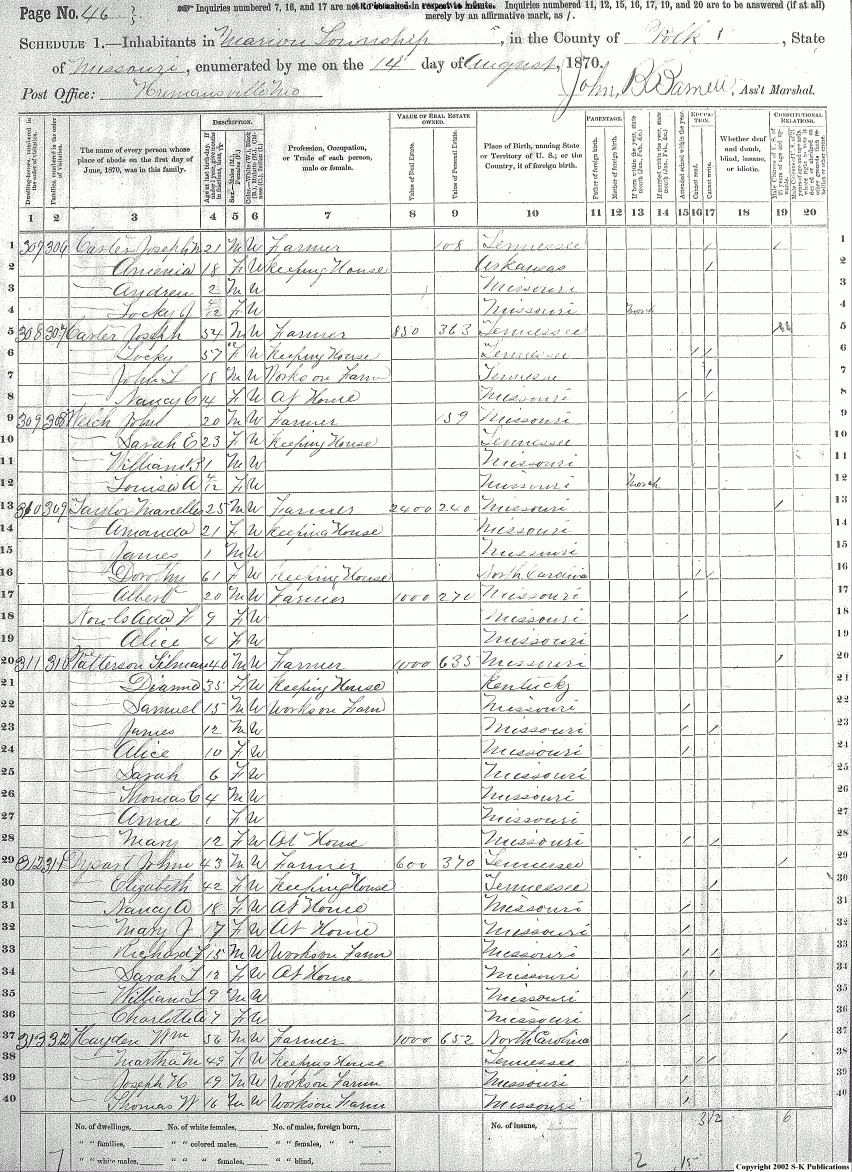 Page No. 46
Inquiries numbered 7, 16, and 17 are not to be asked in respect to infants. Inquiries numbered 11, 12, 15, 16, 17, 19, and 20 are to be answered (if at all)
merely by an affirmative mark, as /.
SCHEDULE 1.—Inhabitants in Marion Township, in the County of Polk, State
of Missouri, enumerated by me on the 14 day of August, 1870.
Post Office: John, B, Ass't Marshal.
Dwelling-houses, numbered in the order of visitation.
Families, numbered in the order of visitation.
The name of every person whose place of abode on the first day of June, 1870, was in this family.
DESCRIPTION.
Profession, Occupation, or Trade of each person, male or female.
VALUE OF REAL ESTATE OWNED.
Value of Real Estate.
Value of Personal Estate.
Place of Birth, naming State or Territory of U. S.; or the Country, if of foreign birth.
PARENTAGE.
Father of foreign birth.
Mother of foreign birth.
EDUCATION.
Cannot read.
Cannot write.
Whether deaf and dumb, blind, insane, or idiotic.
CONSTITUTIONAL RELATIONS.
1 2 3 4 5 6 7 8 9 10 11 12 13 14 15 16 17 18 19 20
1 307 306 Carter Joseph M 21 M W Farmer 108 Tennessee / / 1
2 — Amenia 18 F W Keeping House Arkansas / 2
3 — Andrew 2 M W Missouri 3
4 — Locky J /12 F W Missouri 4
5 308 307 Carter Joseph 54 M W Farmer 850 363 Tennessee 5
6 — Locky 57 F W Keeping House Tennessee / / 6
7 — John L 18 M W Works on Farm Tennessee / 7
8 — Nancy C 14 F W At Home Missouri / / 8
9 309 308 Welch John 20 M W Farmer 159 Missouri 9
10 — Sarah E 23 F W Keeping House Tennessee 10
11 — William 1 M W Missouri 11
12 — Louisa A /12 F W Missouri 12
13 310 309 Taylor Marcelles 25 M W Farmer 2400 240 Missouri / 13
14 — Amanda 21 F W Keeping House Missouri 14
15 — James 1 M W Missouri 15
16 — Dorothy 61 F W Keeping House North Carolina / / 16
17 — Albert 20 M W Farmer 1000 270 Missouri / 17
18 Ada F 9 F W Missouri / 18
19 — Alice 4 F W Missouri 19
20 311 310 Patterson Tilman 40 M W Farmer 1000 635 Missouri / 20
21 — Dianna 35 F W Keeping House Kentucky 21
22 — Samuel 15 M W Works on Farm Missouri / 22
23 — James 12 M W Missouri / / 23
24 — Alice 10 F W Missouri / 24
25 — Sarah 6 F W Missouri 25
26 — Thomas C 4 M W Missouri 26
27 — Anne 1 F W Missouri 27
28 — Mary 12 F W At Home Missouri / / 28
29 312 311 Dysart John 43 M W Farmer 600 370 Tennessee / 29
30 — Elizabeth 42 F W Keeping House Tennessee / 30
31 — Nancy A 18 F W At Home Missouri / 31
32 — Mary J 17 F W At Home Missouri / 32
33 — Richard F 15 M W Works on Farm Missouri / / 33
34 — Sarah L 13 F W At Home Missouri / / 34
35 — William L 9 M W Missouri / 35
36 — Charlotte A 7 F W Missouri / 36
37 313 312 Hayden Wm 56 M W Farmer 1000 652 North Carolina / 37
38 — Martha M 49 F W Keeping House Tennessee / / 38
39 — Joseph H 19 M W Works on Farm Missouri / 39
40 — Thomas W 16 M W Works on Farm Missouri / 40
No. of dwellings, No. of white females, No. of males, foreign born, No. of insane, 6
" " families, " " colored males, " " females, " "
7 " " white males, " " " females, " " blind, 2 15
Copyright 2002 S-K Publications